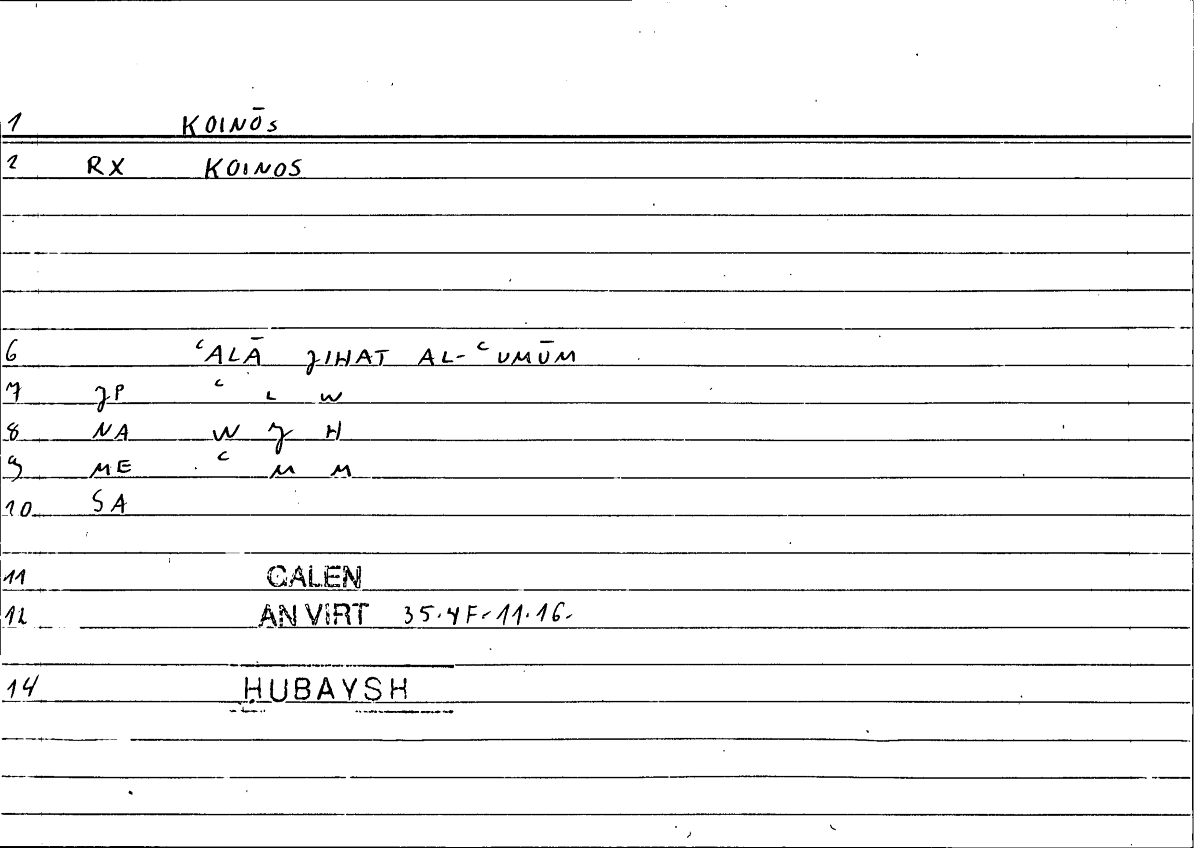 1 KOINŌS
2 RX KOINOS
6 ʿALĀ JIHAT AL-ʿUMŪM
7 JP ʿ L W
8 NA W J H
9 ME ʿ M M
10 SA
11 GALEN
12 AN VIRT 35.4F-11.16.
14 ḤUBAYSH